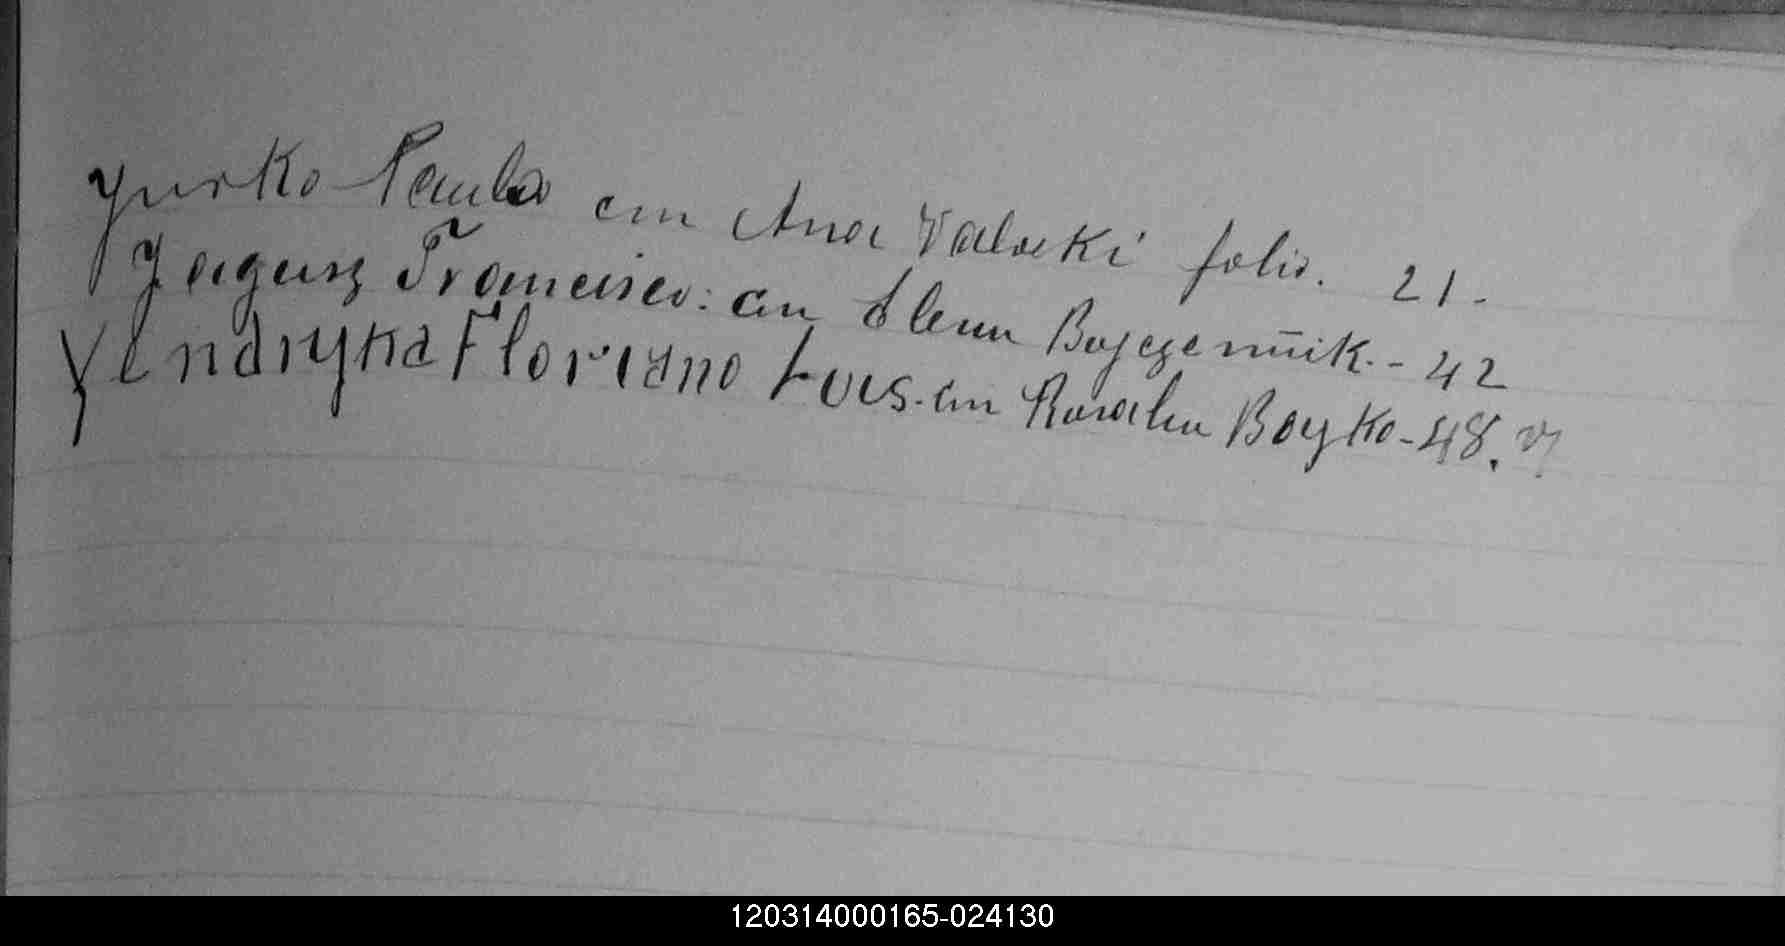 Yurko Paulo con Ana Valuski folio. 21.
Jagusz Francisco: con Elena 42
Yendryka Floriano Luis. con Rosalia Boyko - 48. v
120314000165-024130